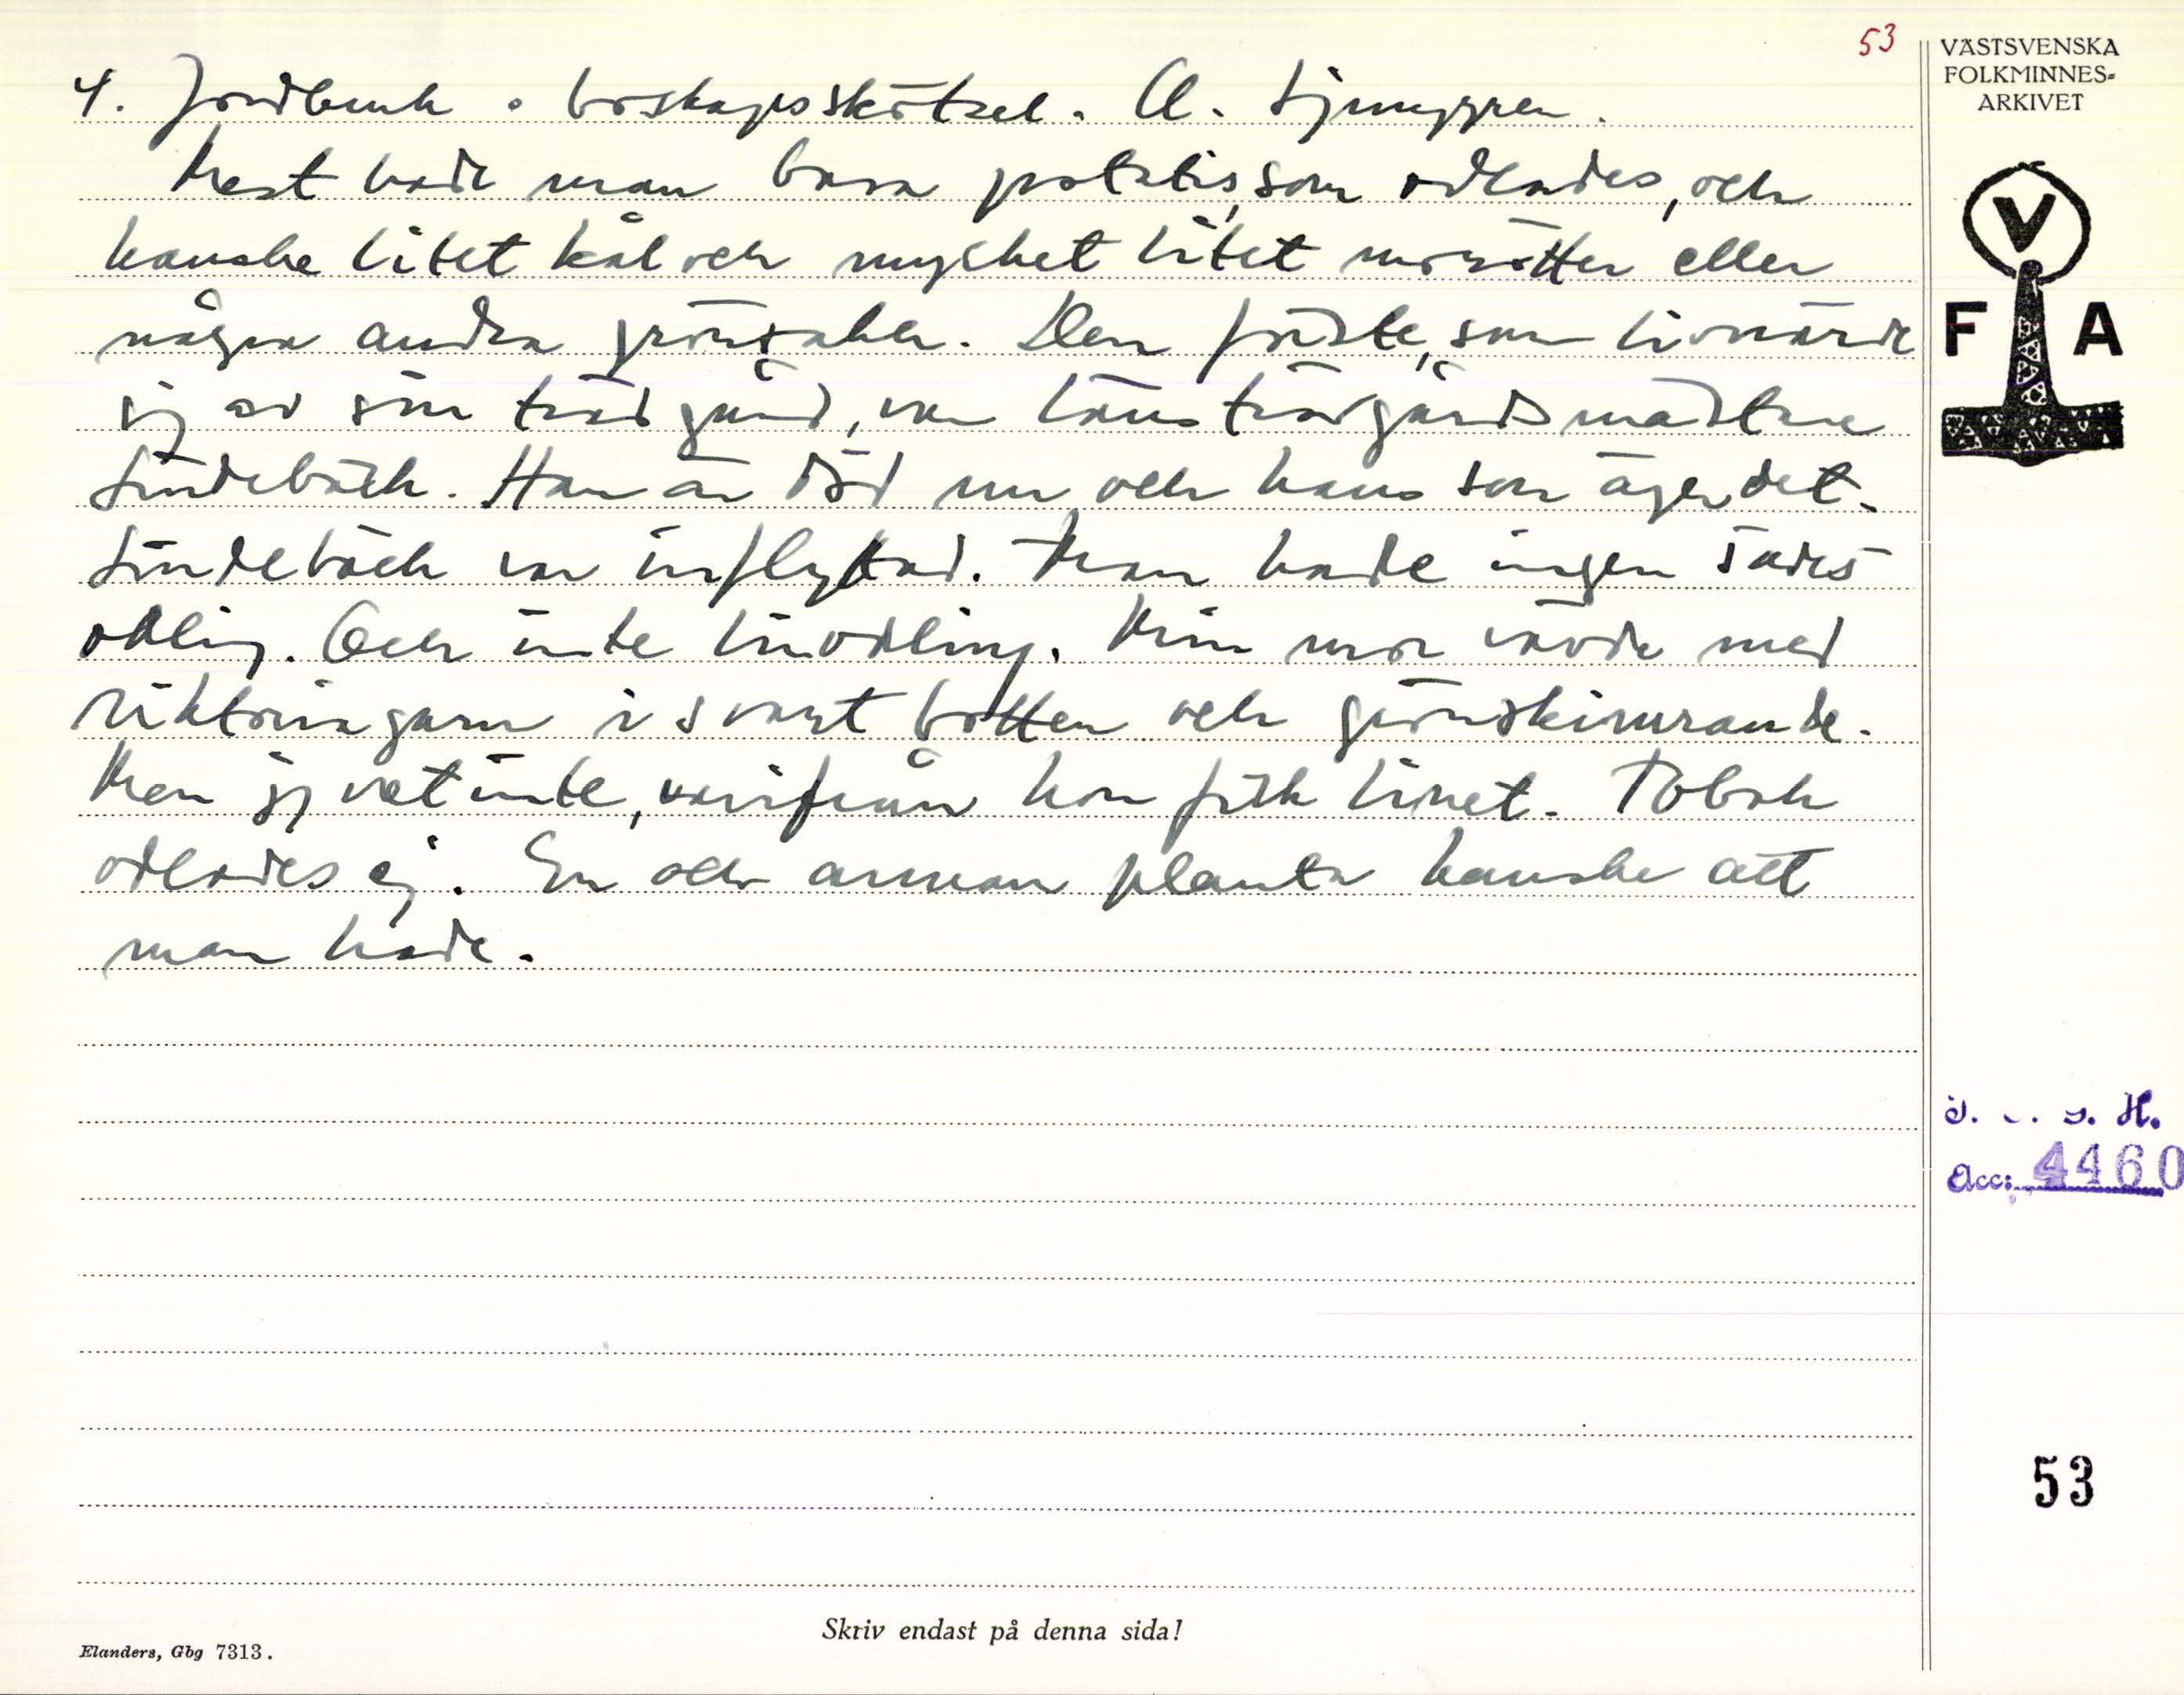 53
VÄSTSVENSKA
FOLKMINNES-
ARKIVET
4. Jordbruk o boskapsskötsel. A. Ljunggren.
Mest hade man bara potatis, som odlades, och
kanske litet kål och mycket litet morötter eller
några andra grönsaker. Den förste, som livnärde
sig av sin trädgård, var länsträdgårdsmästare
Lindebäck. Han är död nu och hans son äger det.
Lindebäck var inflyttad. Man hade ingen sädes
odling. Och inte linodling. Min mor vävde med
i svart botten och grönskimrande.
Men jag vet inte, varifrån hon fick linet. Tobak
odlades ej. En och annan planta kanske att
man hade.
V
F A
H.
Acc: 4460
53
Skriv endast på denna sida!
Elanders, Gbg 7313.